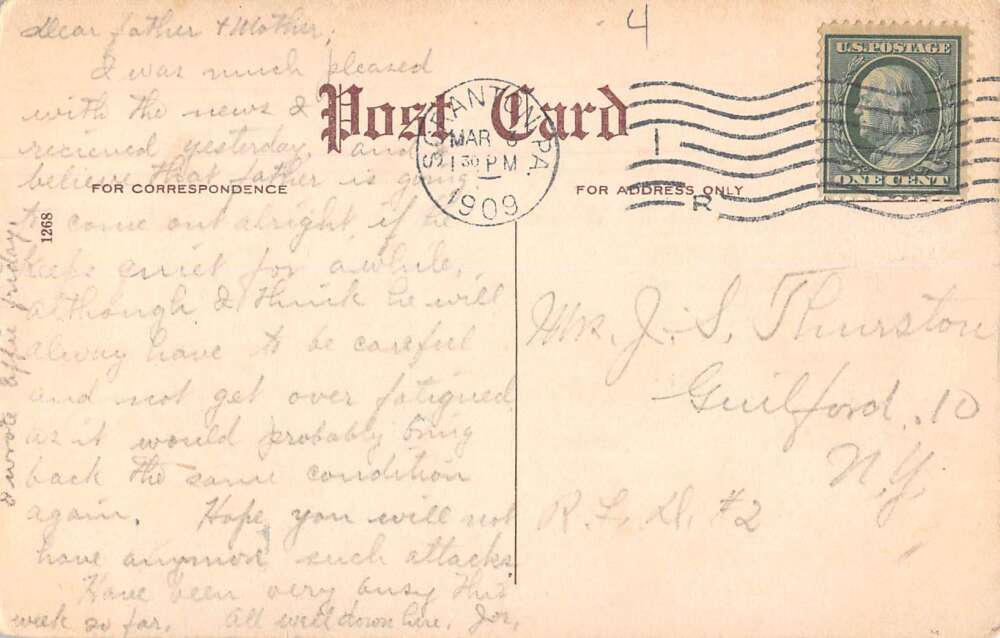 Dear father & Mother,
I was much pleased
with the news I
recieved yesterday, and
believe that father is going
to come out alright if he
keeps quiet for awhile,
although I think he will
alway have to be careful
and not get over fatigued
as it would probably bring
back the same condition
again. Hope you will not
have anymore such attacks.
Have been very busy this
week so far. All well down here. Jor.
I wrote Effie friday.
1268
4
Post Card
FOR CORRESPONDENCE
FOR ADDRESS ONLY
SCRANTON, PA.
MAR
1 30 PM
1909
1
R
U.S. POSTAGE
ONE CENT
Mr. J. S. Thurston
Guilford. 10
N.Y.
R. F. D. #2